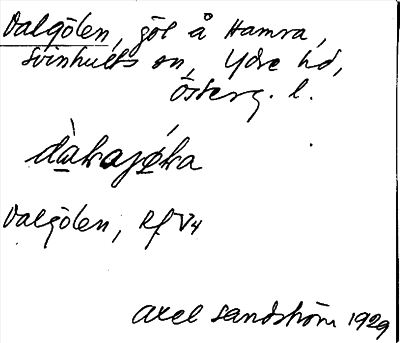 Dalgölen, göl å Hamra,
Svinhults sn, Ydre hd,
Österg. l.
dàkajǿka
Dalgölen, Rf V4
Axel Sandström 1929